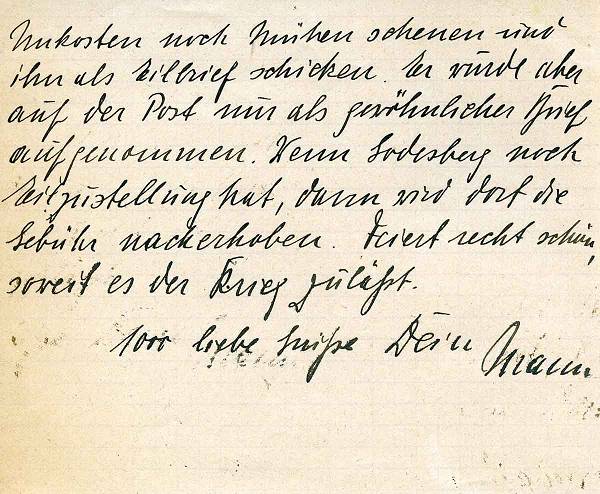 Unkosten noch Mühen scheuen und
ihn als Eilbrief schicken. Er wurde aber
auf der Post nur als gewöhnlicher Brief
aufgenommen. Wenn Godesberg noch
Eilzustellung hat, dann wird dort die
Gebühr nacherhoben. Feiert recht schön,
soweit es der Krieg zuläßt.
1000 liebe Grüße Dein Mann